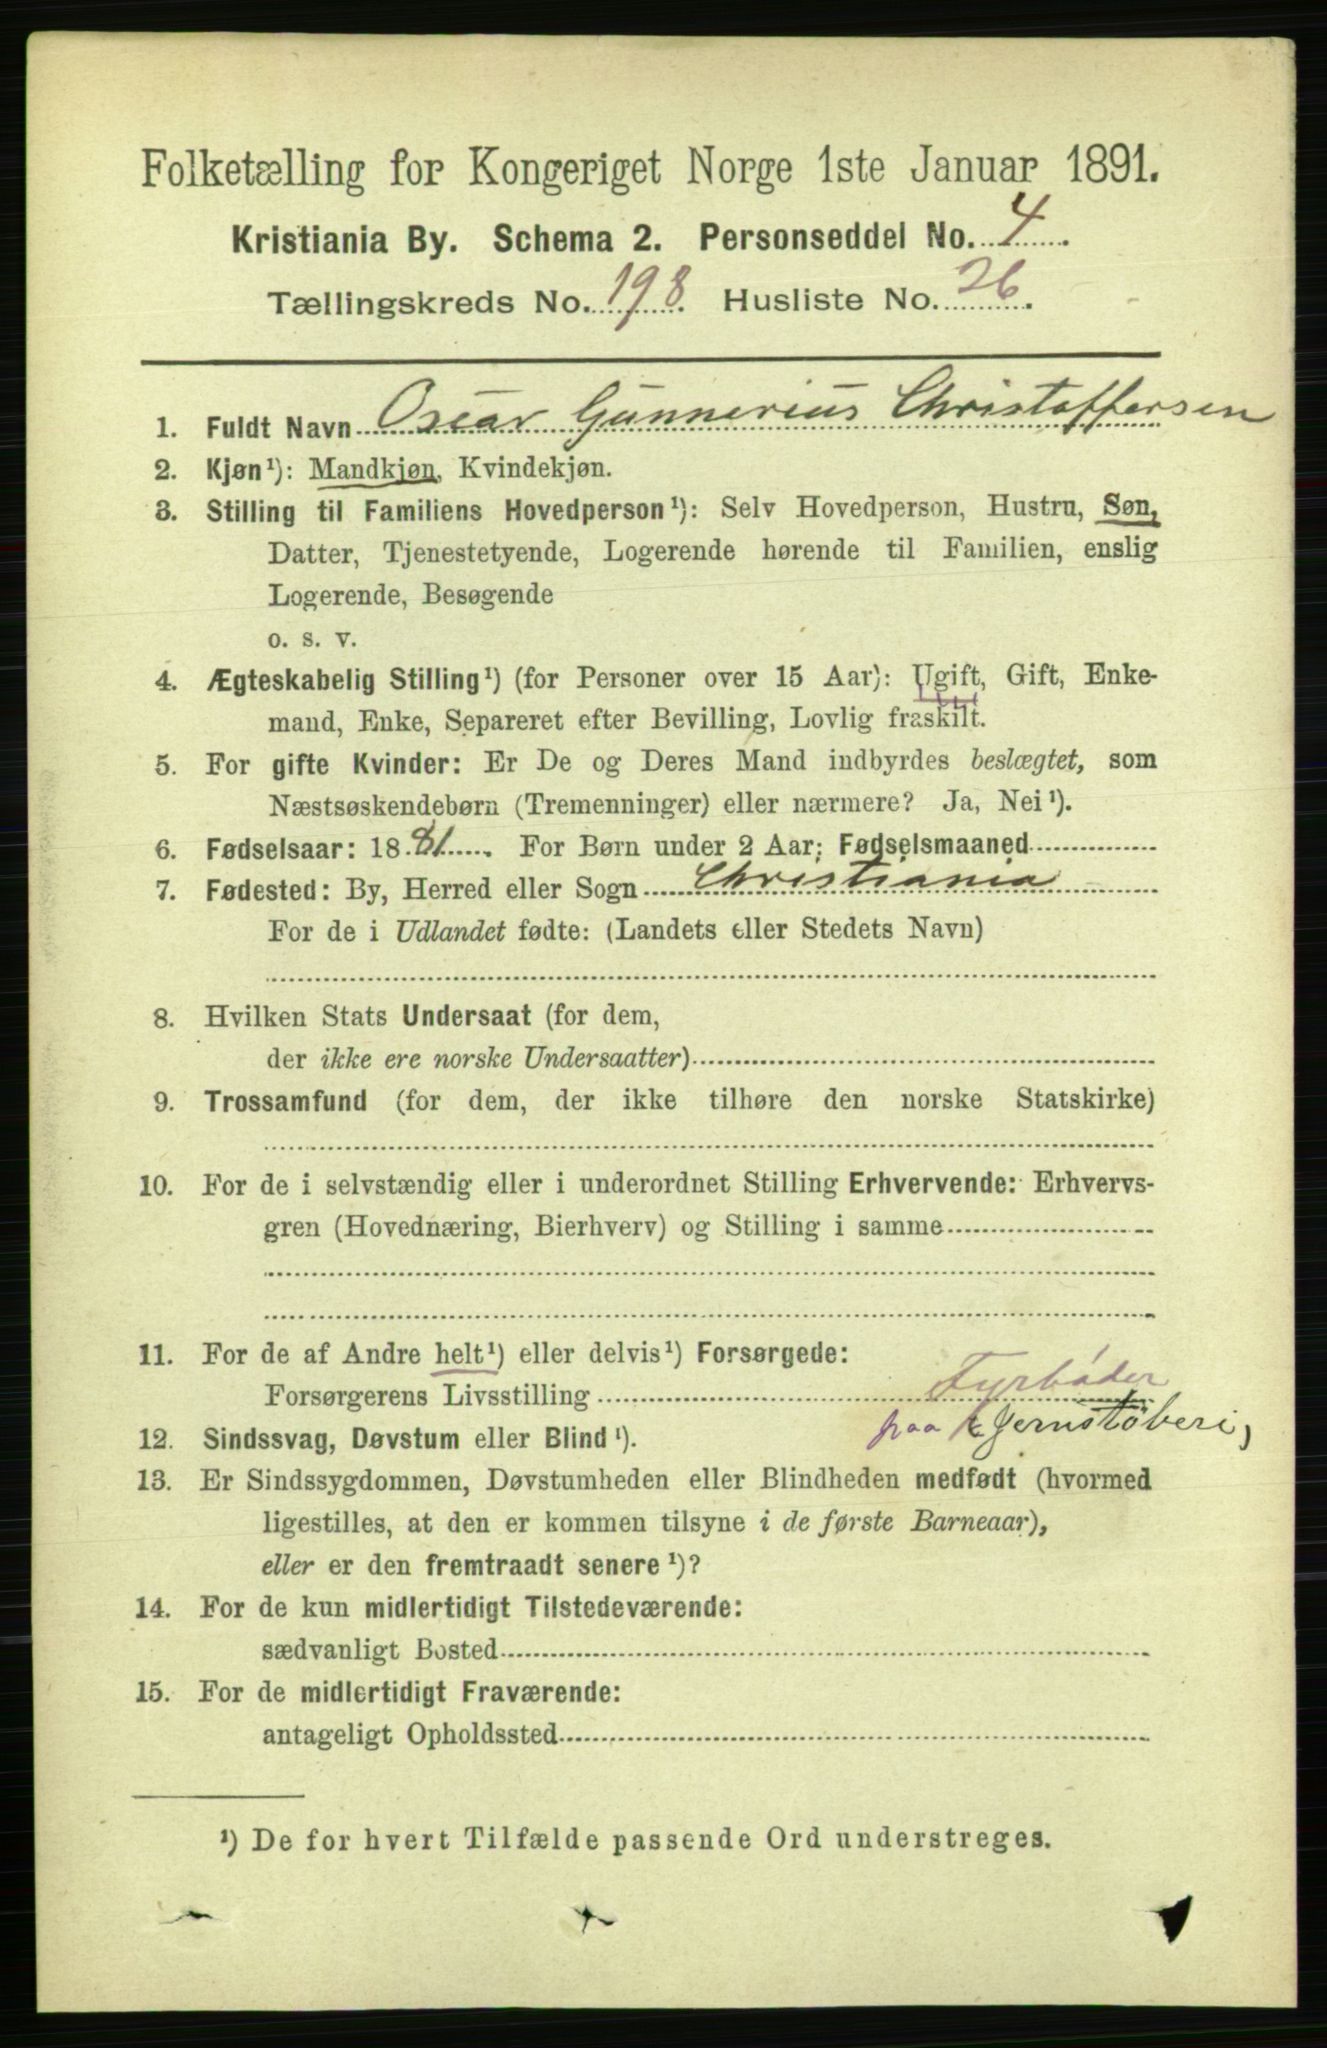 Folketælling for Kongeriget Norge 1ste Januar 1891.
Kristiania By. Schema 2. Personseddel No. 4
Tællingskreds No. 198. Husliste No. 26.
1. Fuldt Navn Oscar Gunnerius Christoffersen
2. Kjøn¹): Mandkjøn, Kvindekjøn.
3. Stilling til Familiens Hovedperson¹): Selv Hovedperson, Hustru, Søn,
Datter, Tjenestetyende, Logerende hørende til Familien, enslig
Logerende, Besøgende
o. s. v.
4. Ægteskabelig Stilling¹) (for Personer over 15 Aar): Ugift, Gift, Enke-
mand, Enke, Separeret efter Bevilling, Lovlig fraskilt.
5. For gifte Kvinder: Er De og Deres Mand indbyrdes beslægtet, som
Næstsøskendebørn (Tremenninger) eller nærmere? Ja, Nei¹).
6. Fødselsaar: 1881. For Børn under 2 Aar: Fødselsmaaned
7. Fødested: By, Herred eller Sogn Christiania
For de i Udlandet fødte: (Landets eller Stedets Navn)
8. Hvilken Stats Undersaat (for dem,
der ikke ere norske Undersaatter)
9. Trossamfund (for dem, der ikke tilhøre den norske Statskirke)
10. For de i selvstændig eller i underordnet Stilling Erhvervende: Erhvervs-
gren (Hovednæring, Bierhverv) og Stilling i samme
11. For de af Andre helt¹) eller delvis¹) Forsørgede:
Forsørgerens Livsstilling Fyrbøder
paa Jernstøberi,
12. Sindssvag, Døvstum eller Blind¹).
13. Er Sindssygdommen, Døvstumheden eller Blindheden medfødt (hvormed
ligestilles, at den er kommen tilsyne i de første Barneaar),
eller er den fremtraadt senere¹)?
14. For de kun midlertidigt Tilstedeværende:
sædvanligt Bosted
15. For de midlertidigt Fraværende:
antageligt Opholdssted
¹) De for hvert Tilfælde passende Ord understreges.